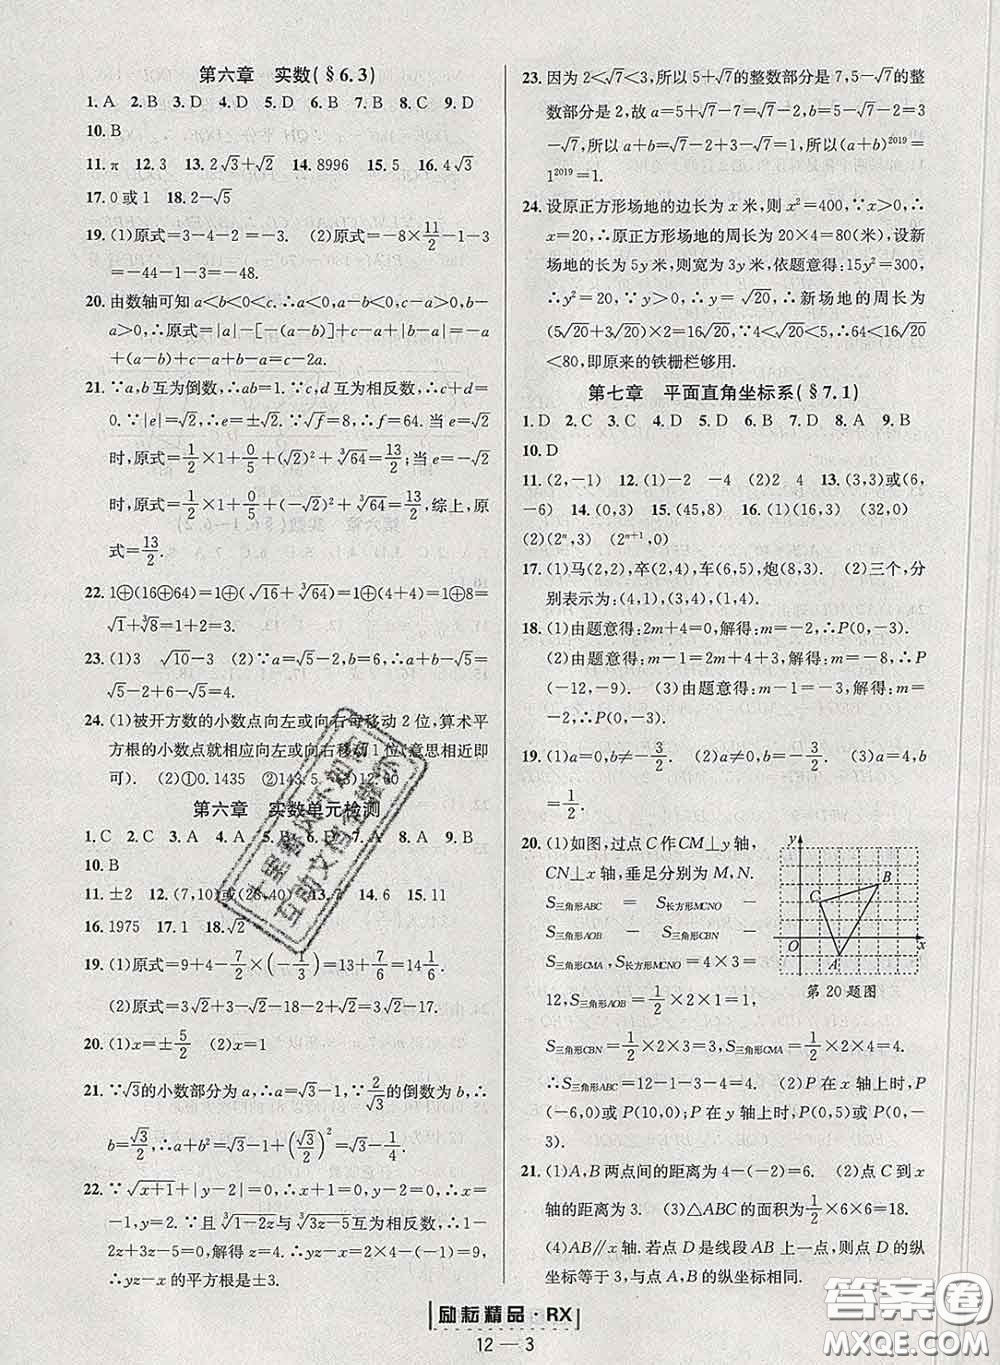 第六章　实数(§6.3)
1. A　2. B　3. D　4. D　5. D　6. B　7. B　8. C　9. D
10. B
11. π　12. 3　13. 2√3+√2　14. 8996　15. 5　16. 4√3
17. 0或1　18. 2-√5
19. (1)原式=3-4-2=-3.　(2)原式=-8×11/2-1-3
=-44-1-3=-48.
20. 由数轴可知a<b<0<c.∴a-b<0,c-a>0,b-
a>0,∴原式=|a|-[-(a-b)]+c-a+|b-a|=-a
+(a-b)+c-a+b-a=c-2a.
21. ∵a,b互为倒数,∴ab=1.∵c,d互为相反数,∴c+d=
0.∵|e|=√2,∴e=±√2.∵√f=8,∴f=64.当e=√2
时,原式=1/2×1+0/5+(√2)²+∛64=13/2;当e=-√2
时,原式=1/2×1+0/5+(-√2)²+∛64=13/2,综上,原
式=13/2.
22. 1⊕(16⊕64)=1⊕(√16+∛64)=1⊕(4+4)=1⊕8=
√1+∛8=1+2=3.
23. (1)3　√10-3　(2)∵a=√5-2,b=6,∴a+b-√5=
√5-2+6-√5=4.
24. (1)被开方数的小数点向左或向右每移动2位,算术平
方根的小数点就相应向左或向右移动1位(意思相近即
可).　(2)①0.1435　②143.5　(3)12.60
第六章　实数单元检测
1. C　2. C　3. A　4. A　5. B　6. D　7. B　8. A　9. B
10. B
11. ±2　12. (7,10)或(28,40)　13. 7　14. 6　15. 11
16. 1975　17. 1　18. √2
19. (1)原式=9+4-7/2×(-1/3)=13+7/6=14 1/6.
(2)原式=3√2+3-2√2-18-2+√2=2√2-17.
20. (1)x=±5/2　(2)x=1
21. ∵√3的小数部分为a,∴a=√3-1,∵2/√3的倒数为b,∴
b=√3/2,∴a+b²=√3-1+(√3/2)²=√3-1+3/4=√3-1/4.
22. ∵√x+1+|y-2|=0,∴x+1=0,y-2=0,∴x=
-1,y=2.∵且∛1-2z与∛3z-5互为相反数,∴1-
2z+3z-5=0,解得z=4.∴yz-x=2×4-(-1)=9,
∴yz-x的平方根是±3.
23. 因为2<√7<3,所以5+√7的整数部分是7,5-√7的整
数部分是2,故a=5+√7-7=√7-2,b=5-√7-2=3
-√7,所以a+b=√7-2+3-√7=1,所以(a+b)²⁰¹⁹=
1²⁰¹⁹=1.
24. 设原正方形场地的边长为x米,则x²=400,∵x>0,∴
x=20,∴原正方形场地的周长为20×4=80(米),设新
场地的长为5y米,则宽为3y米,依题意得:15y²=300,
∴y²=20,∵y>0,∴y=√20,∴新场地的周长为
(5√20+3√20)×2=16√20,∵4<√20<5,∴64<16√20
<80,即原来的铁栅栏够用.
第七章　平面直角坐标系(§7.1)
1. D　2. C　3. C　4. D　5. D　6. D　7. D　8. A　9. B
10. D
11. (2,-1)　12. (1)-2　-4　(2)2　4　13. (3,3)或(6,
-6)　14. (0,3)　15. (45,8)　16. (1)(16,3)　(32,0)
(2)(2ⁿ,3)　(2ⁿ⁺¹,0)
17. (1)马(2,2),卒(2,4),车(6,5),炮(8,3)　(2)三个,分
别表示为:(4,1),(3,4),(1,4).
18. (1)由题意得:2m+4=0,解得:m=-2,∴P(0,-3).
(2)由题意得:m-1=2m+4+3,解得:m=-8,∴P
(-12,-9).　(3)由题意得:m-1=-3,解得:m=
-2,∴P(0,-3).
19. (1)a=0,b≠-3/2.　(2)a≠0,b=-3/2　(3)a=4,b
=1/2.
20. (1)如图,过点C作CM⊥y轴,
CN⊥x轴,垂足分别为M,N.
S三角形ABC = S长方形MCNO -
S三角形AOB - S三角形CBN -
S三角形CMA,S长方形MCNO=4×3=
12,S三角形AOB=1/2×2×1=1,
S三角形CBN=1/2×2×3=3,S三角形CMA=1/2×2×4=4.
∴S三角形ABC=12-1-3-4=4.　(2)P在x轴上时,P
(-6,0)或P(10,0);P在y轴上时,P(0,5)或P(0,-
3).
y
B
C
O
A
x
第20题图
21. (1)A,B两点间的距离为4-(-2)=6.　(2)点C到x
轴的距离为3.　(3)△ABC的面积为1/2×6×6=18.
(4)AB∥x轴.若若点D是线段AB上一点,则点D的纵
坐标等于3,与点A,B的纵坐标相同.
励耘精品·RX
12—3
十里春风不如你
互助文档在掌心
答案圈
MXQE.COM